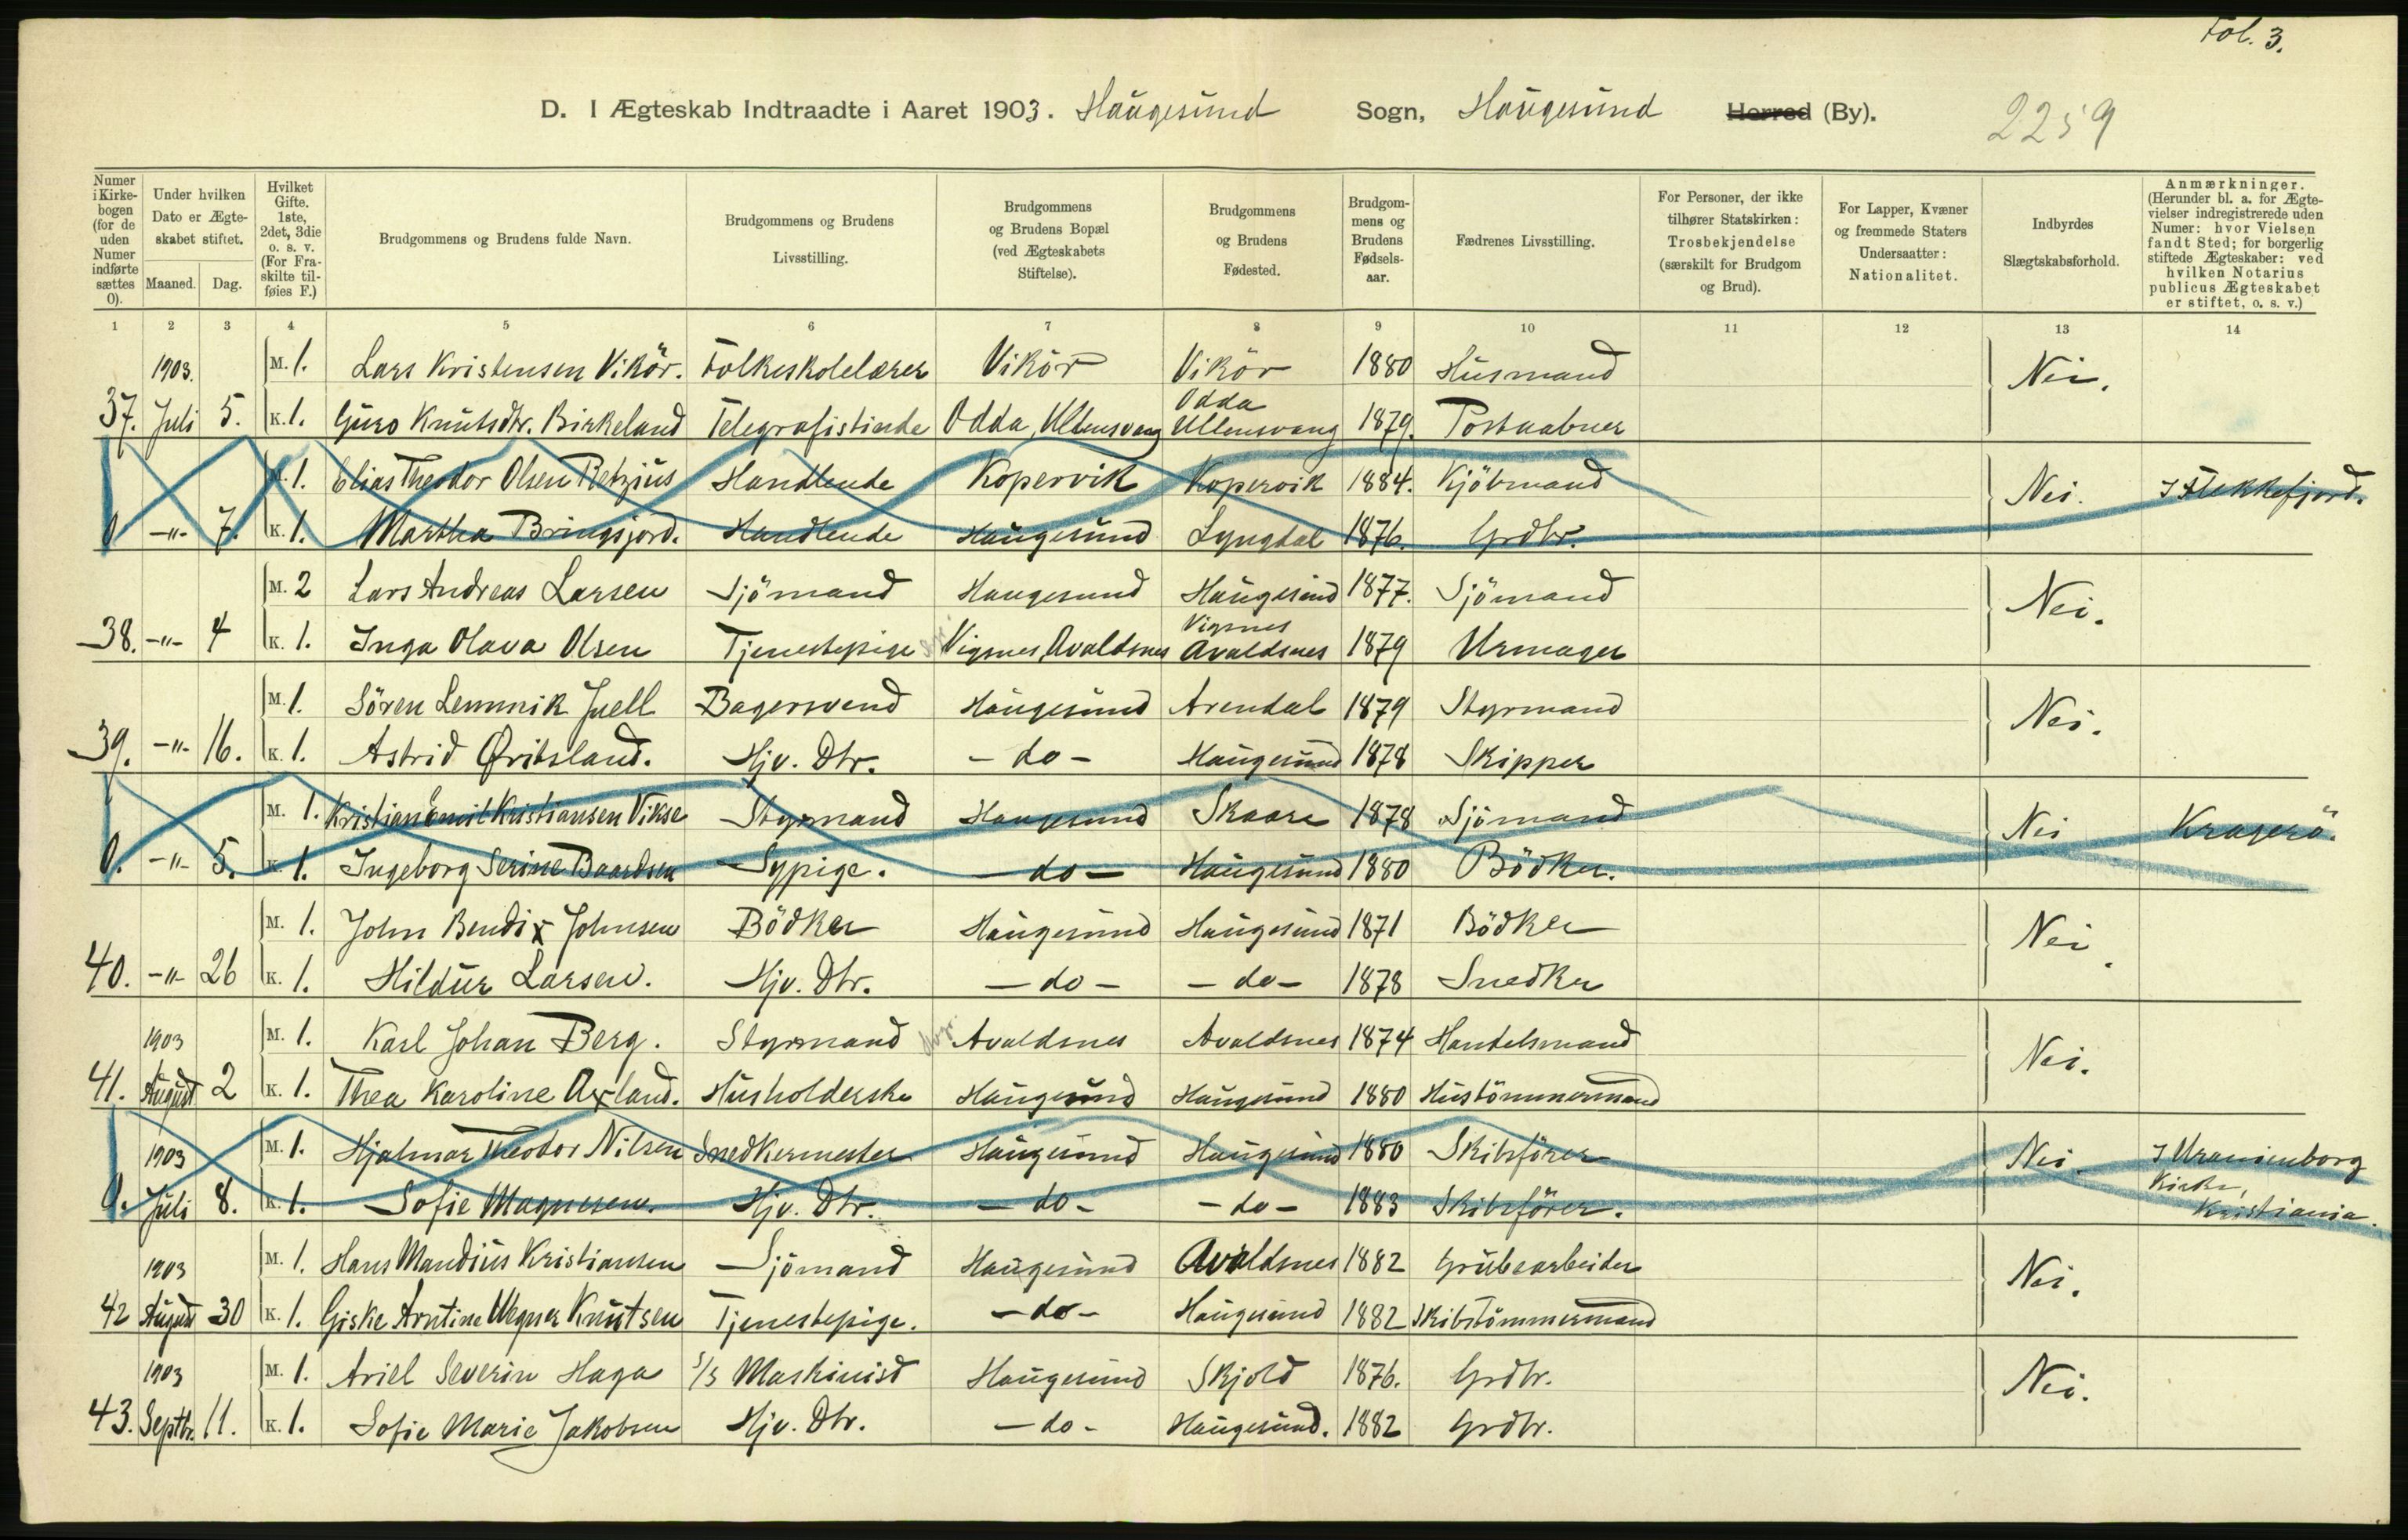 Fol. 3.
D. I Ægteskab Indtraadte i Aaret 1903. Haugesund Sogn, Haugesund Herred (By). 2259
Numer i Kirkebogen (for de uden Numer indførte sættes 0).
Under hvilken Dato er Ægteskabet stiftet.
Maaned. Dag.
Hvilket Gifte. 1ste, 2det, 3die o. s. v. (For Fraskilte tilføies F.)
Brudgommens og Brudens fulde Navn.
Brudgommens og Brudens Livsstilling.
Brudgommens og Brudens Bopæl (ved Ægteskabets Stiftelse).
Brudgommens og Brudens Fødested.
Brudgommens og Brudens Fødselsaar.
Fædrenes Livsstilling.
For Personer, der ikke tilhører Statskirken: Trosbekjendelse (særskilt for Brudgom og Brud).
For Lapper, Kvæner og fremmede Staters Undersaatter: Nationalitet.
Indbyrdes Slægtskabsforhold.
Anmærkninger. (Herunder bl. a. for Ægtevielser indregistrerede uden Numer: hvor Vielsen fandt Sted; for borgerlig stiftede Ægteskaber: ved hvilken Notarius publicus Ægteskabet er stiftet, o. s. v.)
1 2 3 4 5 6 7 8 9 10 11 12 13 14
1903. M. 1. Lars Kristensen Vikör. Folkeskolelærer Vikör Vikör 1880 Husmand Nei.
37. Juli 5. K. 1. Guro Knutsdtr. Birkeland Telegrafistinde Odda, Ullensvang Odda Ullensvang 1879. Postaabner
M. 1. Elias Theodor Olsen Retzius Handlende Kopervik Kopervik 1884. Kjöbmand Nei. I Flekkefjord.
0 -"- 7. K. 1. Martha Bringsjord. Handlende Haugesund Lyngdal 1876. Grdbr.
M. 2 Lars Andreas Larsen Sjömand Haugesund Haugesund 1877. Sjömand Nei.
38. -"- 4 K. 1. Inga Olava Olsen Tjenestepige Vigsnes, Avaldsnes Vigsnes Avaldsnes 1879 Urmager
M. 1. Sören Lemmik Juell Bagersvend Haugesund Arendal 1879 Styrmand Nei.
39. -"- 16. K. 1. Astrid Øritsland. Hjv. Dtr. - do - Haugesund 1878 Skipper
M. 1. Kristian Emil Kristiansen Vikse Styrmand Haugesund Skaare 1878 Sjömand Nei Kragerö.
0. -"- 5. K. 1. Ingeborg Serine Baardsen Sypige. - do - Haugesund 1880 Bödker.
M. 1. John Bendix Johnsen Bödker Haugesund Haugesund 1871 Bödker Nei.
40. -"- 26 K. 1. Hildur Larsen. Hjv. Dtr. - do - - do - 1878 Snedker
1903 M. 1. Karl Johan Berg. Styrmand Avaldsnes Avaldsnes 1874 Handelsmand Nei.
41. August 2 K. 1. Thea Karoline Axland. Husholderske Haugesund Haugesund 1880 Hustömmermand
1903 M. 1. Hjalmar Theodor Nilsen Snedkermester Haugesund Haugesund 1880 Skibsförer Nei. I Uranienborg Kirke, Kristiania.
0. Juli 8. K. 1. Sofie Magnesen. Hjv. Dtr. - do - - do - 1883 Skibsförer.
1903 M. 1. Hans Mandius Kristiansen Sjömand Haugesund Avaldsnes 1882 Grubearbeider Nei.
42 August 30 K. 1. Giske Arntine Wegner Knutsen Tjenestepige. - do - Haugesund 1882 Skibstömmermand
1903 M. 1. Ariel Severin Haga S/S Maskinist Haugesund Skjold 1876. Grdbr. Nei.
43. Septbr. 11. K. 1. Sofie Marie Jakobsen Hjv. Dtr. - do - Haugesund. 1882 Grdbr.